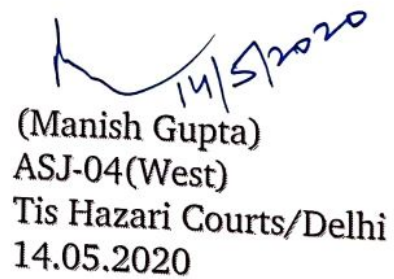 14/5/2020
(Manish Gupta)
ASJ-04(West)
Tis Hazari Courts/Delhi
14.05.2020